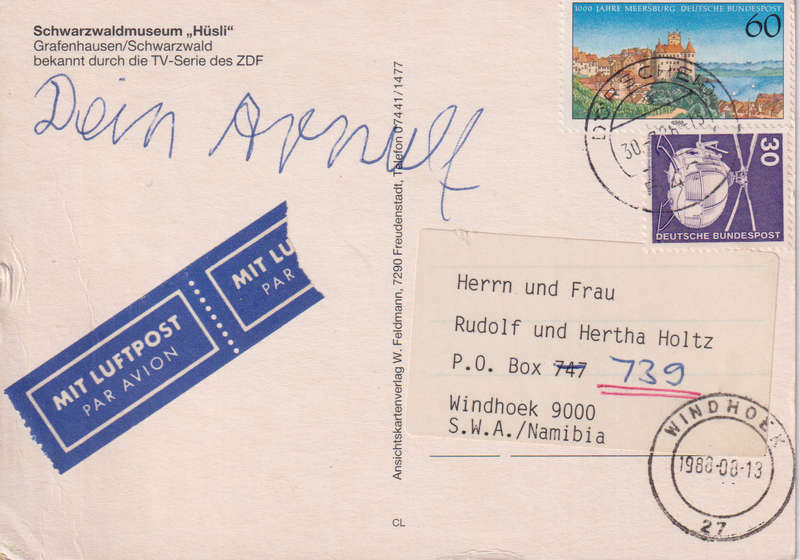 Schwarzwaldmuseum „Hüsli“
Grafenhausen/Schwarzwald
bekannt durch die TV-Serie des ZDF
Dein Arnulf
1000 JAHRE MEERSBURG DEUTSCHE BUNDESPOST
60
30
DEUTSCHE BUNDESPOST
MIT LUFTPOST
PAR AVION
MIT LU
PAR
Ansichtskartenverlag W. Feldmann, 7290 Freudenstadt, Telefon 07441/1477
CL
Herrn und Frau
Rudolf und Hertha Holtz
P.O. Box 747 739
Windhoek 9000
S.W.A./Namibia
WINDHOEK
1988-08-13
27